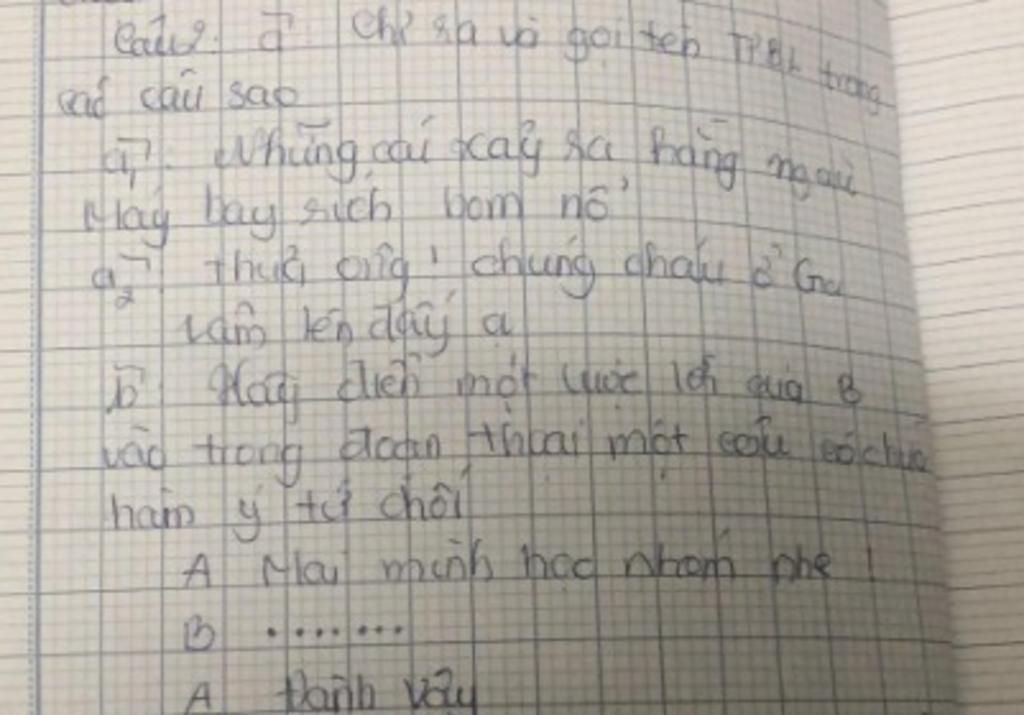 Câu2. a Chỉ ra và gọi tên TPBL trong
các câu sao
a1. Những cái xảy ra hằng ngày
Máy bay rích bom nổ
a2 thưa ông! chúng cháu ở Gia
Lâm lên đấy ạ
b Hãy điền một lượt lời của B
vào trong đoạn thoại một câu có chứa
hàm ý từ chối
A Mai mình học nhóm nhé!
B .......
A Đành vậy